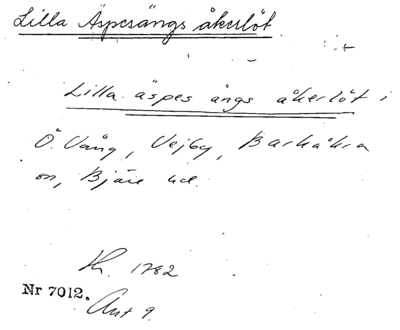 Lilla Äspesängs åkerlöt
Lilla äspes ängs åkerlöt i
Ö. Vång, Vejby, Barkåkra
sn, Bjäre hd.
Kh. 1782
Nr 7012.
Ant 9